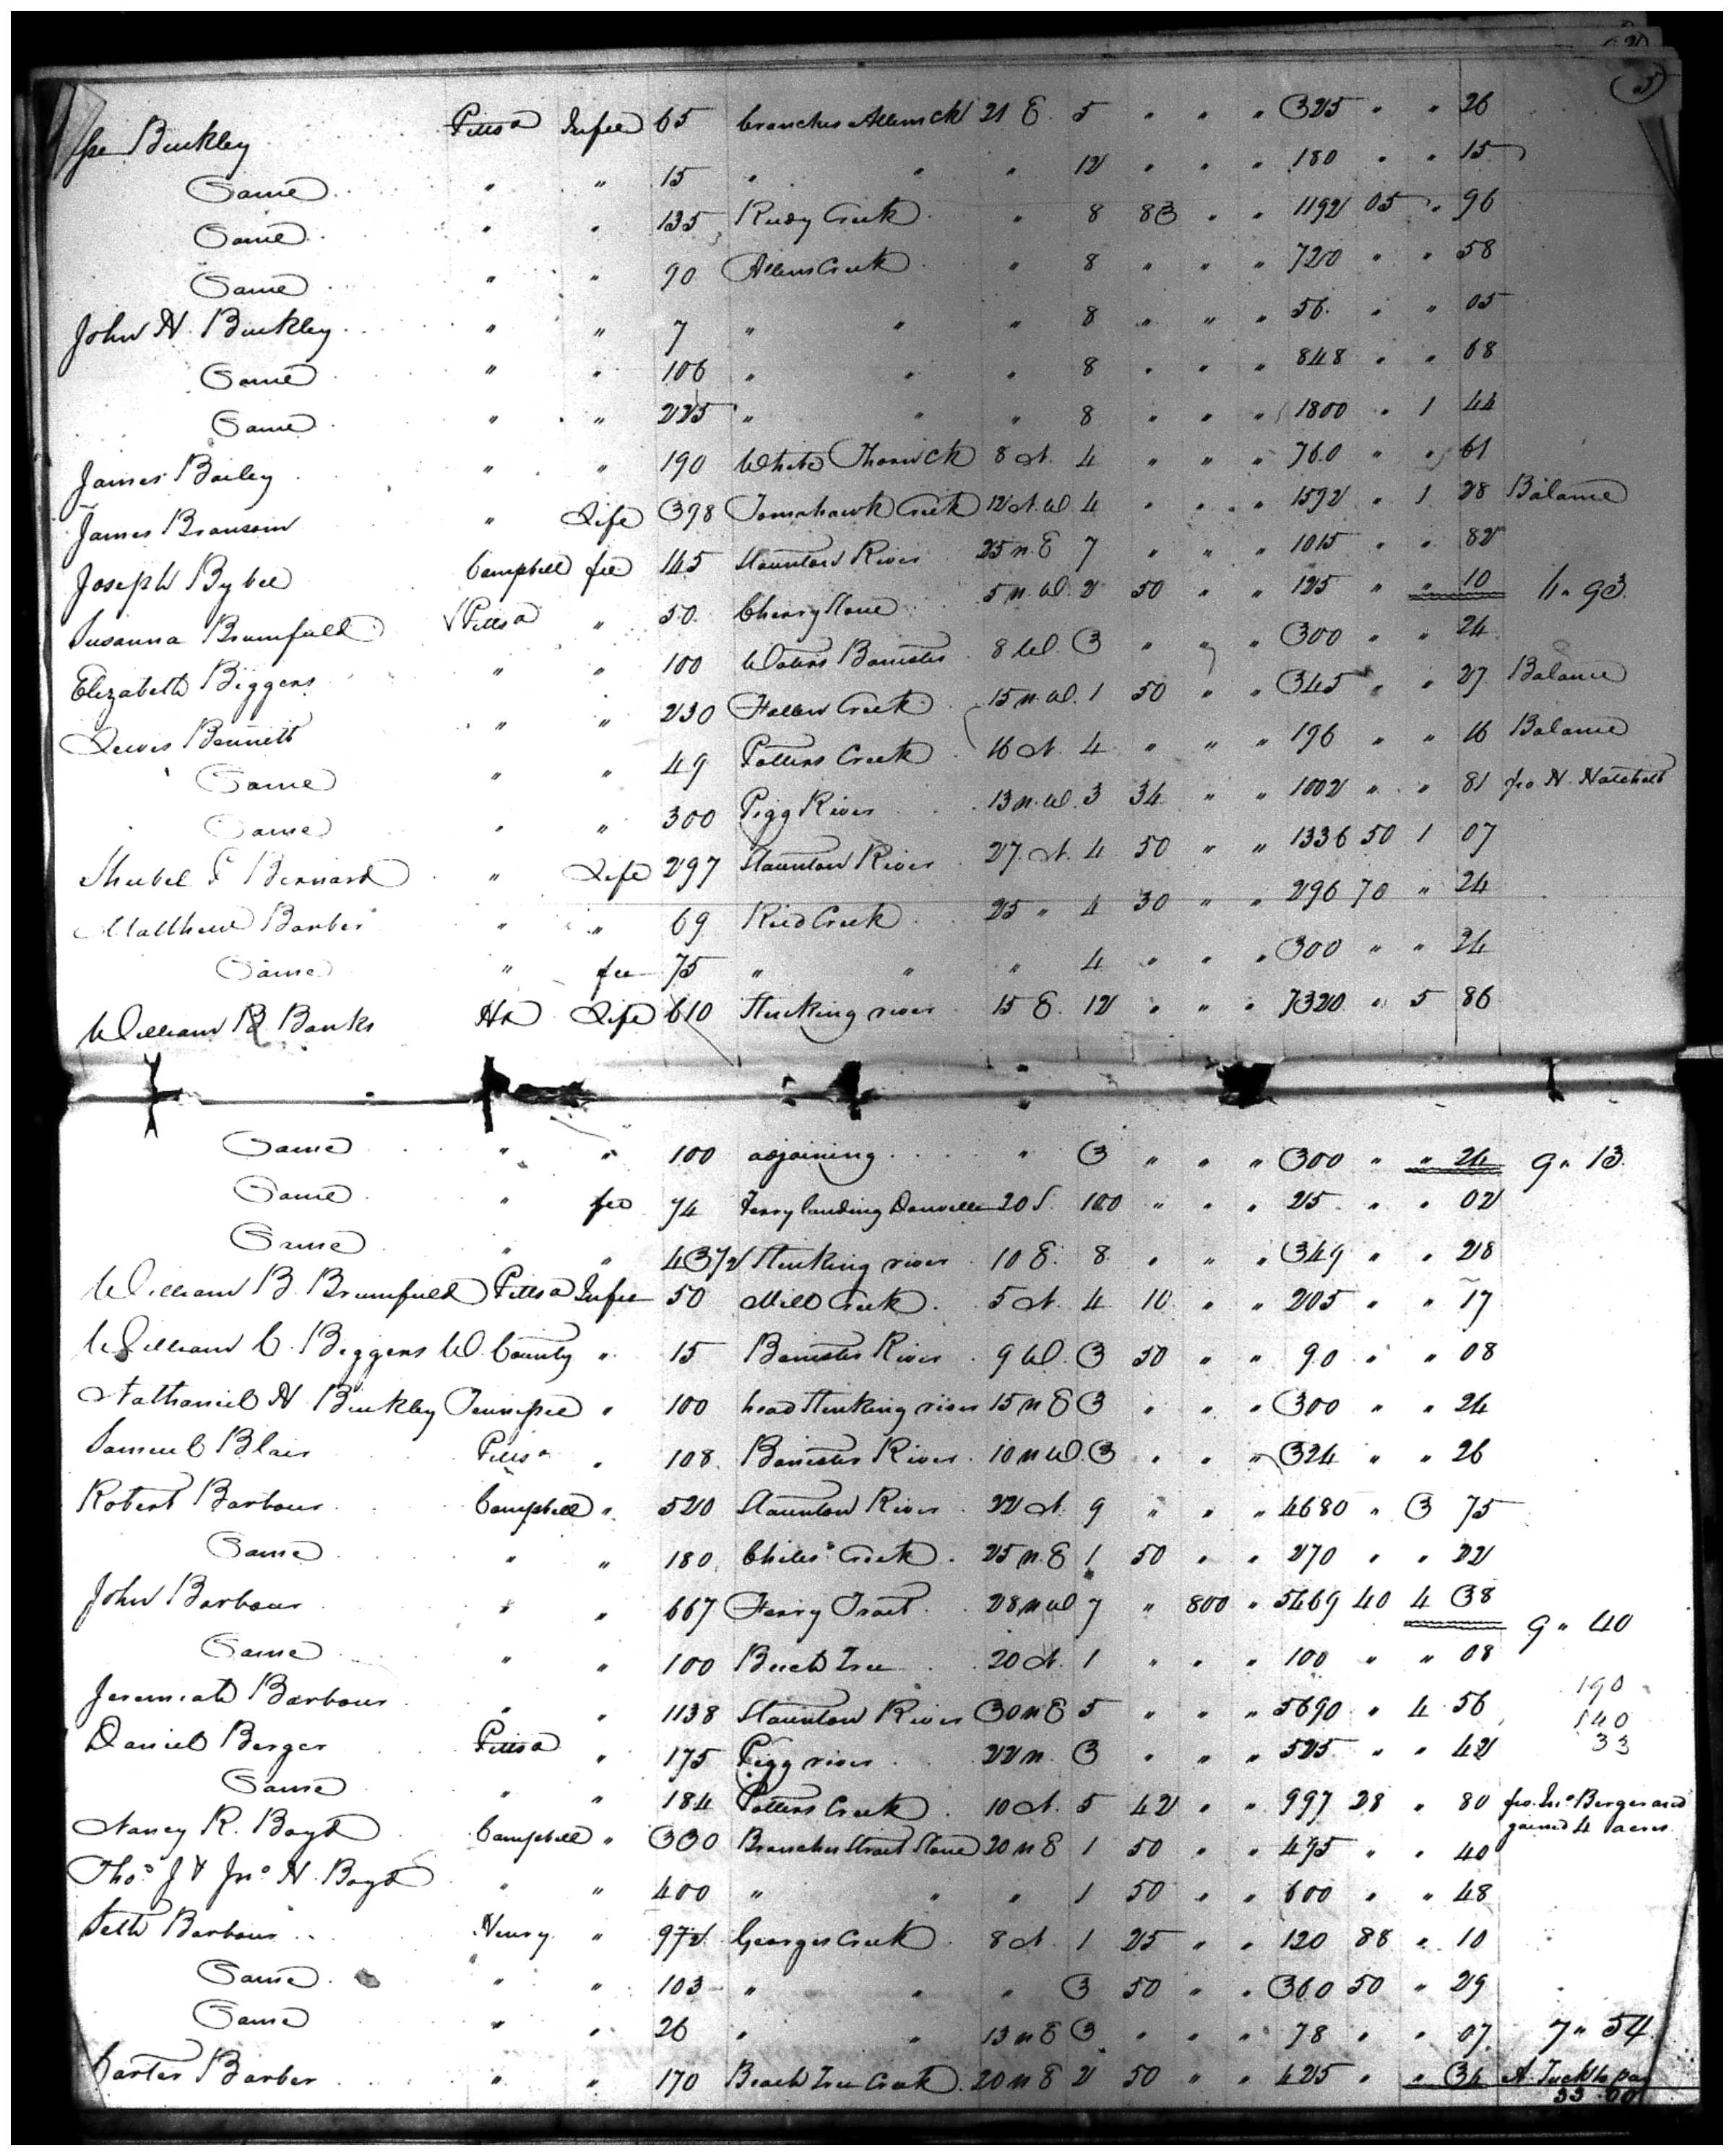 5
Binkley Pittsa Infee 65 branches Allens Ck 21 E. 5 " " " 325 " " 26
Same " " 15 " " " 12 " " " 180 " " 15
Same " " 135 Reedy Creek " 8 83 " " 1192 05 " 96
Same " " 90 Allens Creek " 8 " " " 720 " " 58
John H. Binkley " " 7 " " " 8 " " " 56 " " 05
Same " " 106 " " " 8 " " " 848 " " 68
Same " " 225 " " " 8 " " " 1800 " 1 44
James Bailey " " 190 White Thorn Ck 8 N. 4 " " " 760 " " 61
James Bransom " Life 398 Tomahawk Creek 12 N.W. 4 " " " 1592 " 1 28 Balance
Joseph Bybee Campbell fee 145 Staunton River 25 N.E 7 " " " 1015 " " 82
Susanna Brumfield Pittsa " 50 Cherrystone 5 N.W. 2 50 " " 125 " " 10 h " 93
Elizabeth Biggers " " 100 Waters Banister 8 W. 3 " " " 300 " " 24
Lewis Bennett " " 230 Fallen Creek 15 N.W. 1 50 " " 345 " " 27 Balance
Same " " 49 Potters Creek 16 N. 4 " " " 196 " " 16 Balance
Same " " 300 Pigg River 13 N.W. 3 34 " " 1002 " " 81 fro H. Hatchett
Shubel Bernard " Life 297 Staunton River 27 N. 4 50 " " 1336 50 1 07
Matthew Barber " " 69 Reed Creek 25 " 4 30 " " 296 70 " 24
Same " fee 75 " " " 4 " " " 300 " " 24
William B Banks Hx Life 610 Stinking river 15 E. 12 " " " 7320 " 5 86
Same " " 100 adjoining " 3 " " " 300 " " 24 9 " 13
Same " fee 74 Ferry landing Danville 20 S. 100 " " " 25 " " 02
Same " " 43 1/2 Stinking river 10 E. 8 " " " 349 " " 28
William B. Brumfield Pittsa Infee 50 Mill Creek 5 N. 4 10 " " 205 " " 17
William C. Biggers W. County " 15 Banister River 9 W. 3 50 " " 90 " " 08
Nathaniel H Binkley Tennessee " 100 head Stinking river 15 N E 3 " " " 300 " " 24
Samuel Blair Pittsa " 108 Banister River 10 N W. 3 " " " 324 " " 26
Robert Barbour Campbell " 520 Staunton River 22 N. 9 " " " 4680 " 3 75
Same " " 180 Childs Creek 25 N. E 1 50 " " 270 " " 22
John Barbour " " 667 Ferry Tract 28 N W 7 " 800 " 5469 40 4 38
9 " 40
Same " " 100 Beech Tree 20 N. 1 " " " 100 " " 08
Jeremiah Barbour " " 1138 Staunton River 30 N E 5 " " " 5690 " 4 56
190
140
33
Daniel Berger Pittsa " 175 Pigg river 22 N. 3 " " " 525 " " 42
Same " " 184 Potters Creek 10 N. 5 42 " " 997 28 " 80 fro. Jno Berger and gained 4 acres
Nancy R. Boyd Campbell " 330 Branches Strait Stone 20 N E 1 50 " " 495 " " 40
Thos J & Jno H. Boyd " " 400 " " " 1 50 " " 600 " " 48
Seth Barbour Henry " 97 1/2 Georges Creek 8 N. 1 25 " " 120 88 " 10
Same " " 103 " " " 3 50 " " 360 50 " 29
Same " " 26 " " 13 N E 3 " " " 78 " " 07 7 " 54
Carter Barber " " 170 Beach Tree Creek 20 N E 2 50 " " 425 " " 34 A. Tuck to pay
33